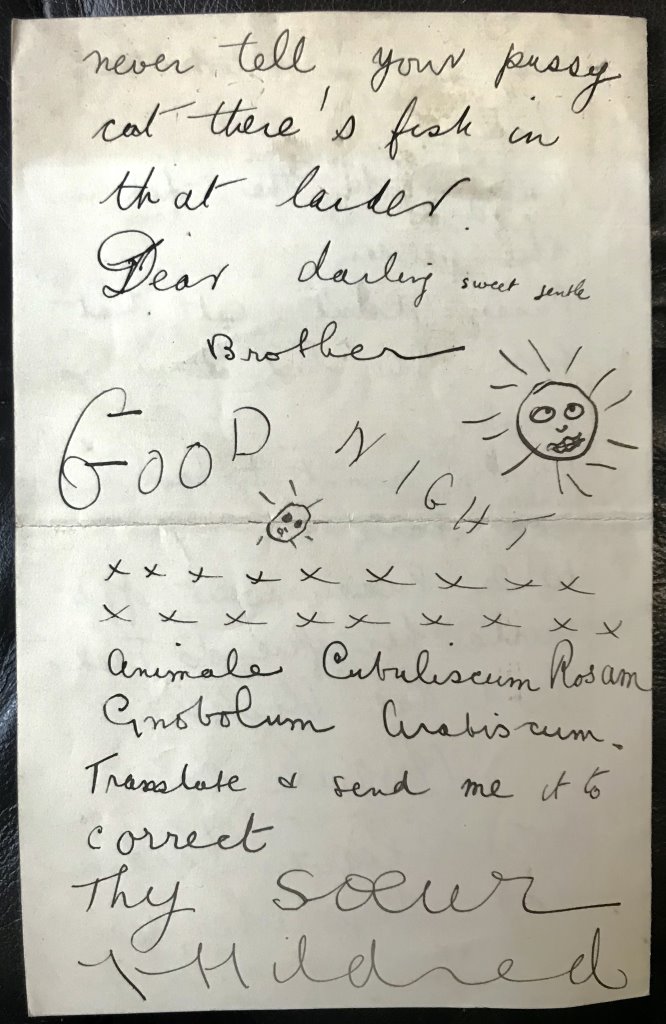 never tell your pussy
cat there's fish in
that larder.
Dear darling sweet gentle
Brother
GOOD NIGHT
x x x x x x x x x
x x x x x x x x x
Animale Cubuliscum Rosam
Gnobolum Arabiscum.
Translate & send me it to
correct
Thy sœur
Mildred